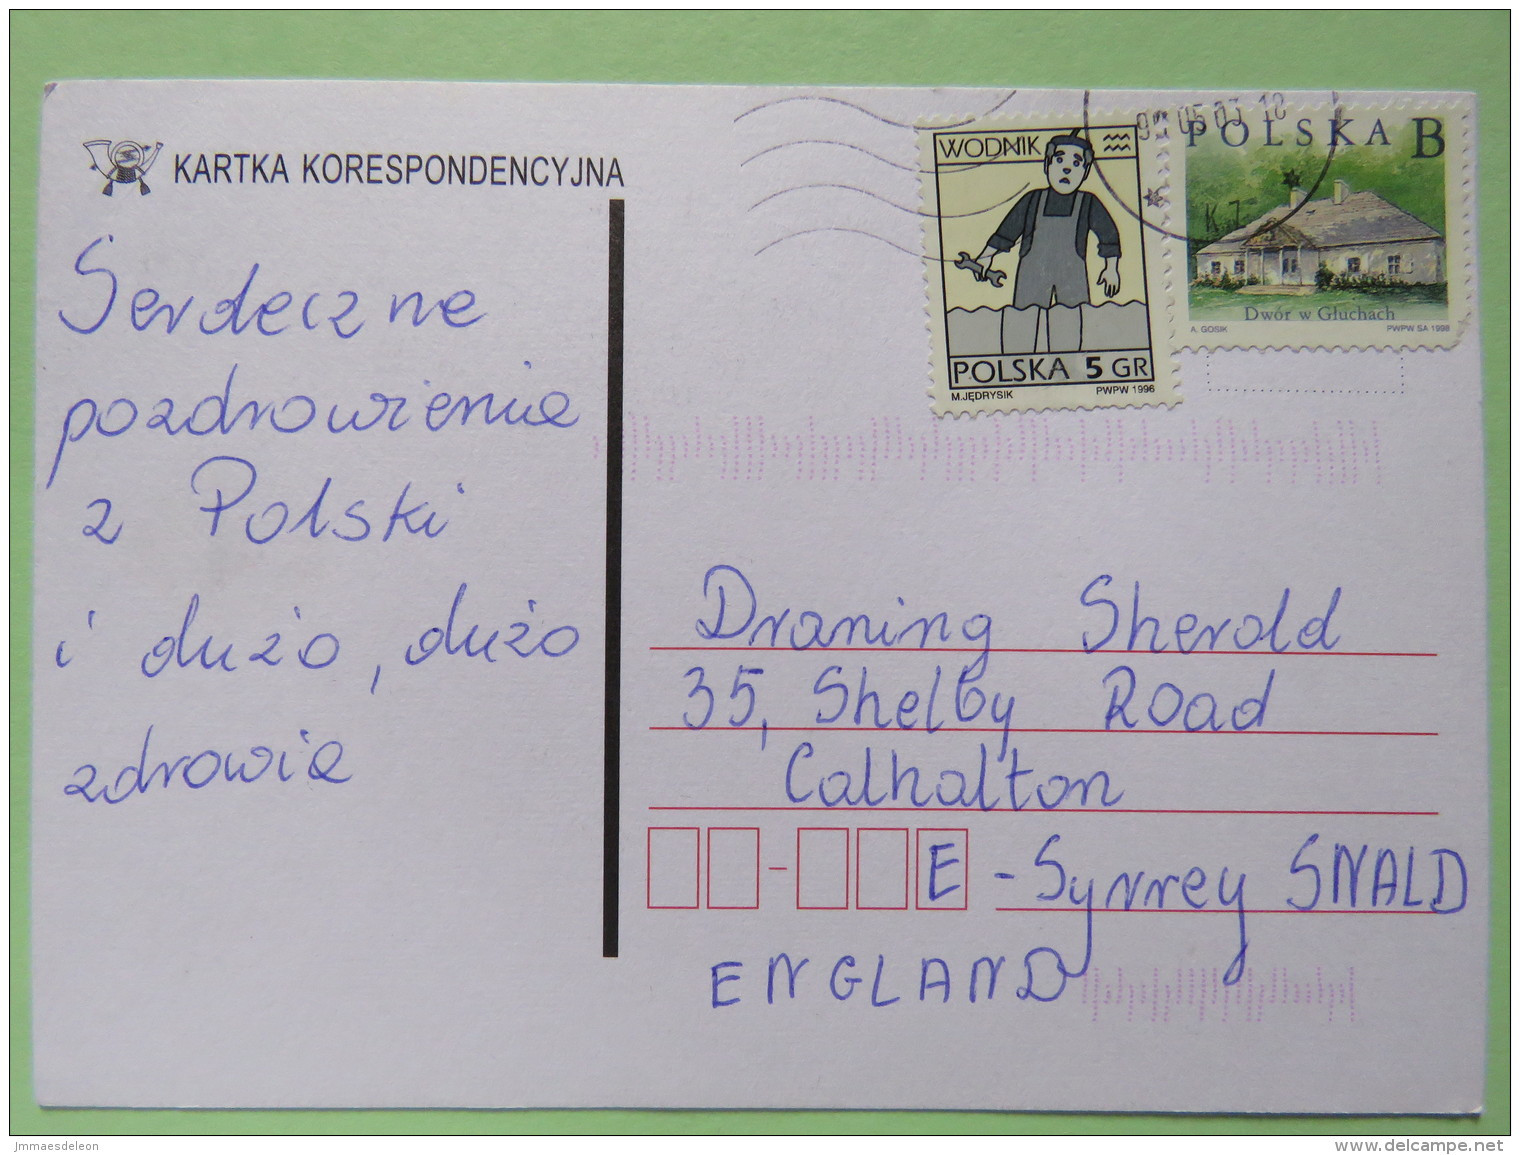 KARTKA KORESPONDENCYJNA
Serdeczne
pozdrowienia
z Polski
i dużo, dużo
zdrowia
WODNIK
POLSKA 5 GR
M.JĘDRYSIK PWPW 1996
POLSKA B
Dwór w Głuchach
A. GOSIK PWPW SA 1998
Draning Sherold
35, Shelby Road
Calhalton
E - Synrrey SNALD
ENGLAND
jmmaesdeleon
delcampe.net